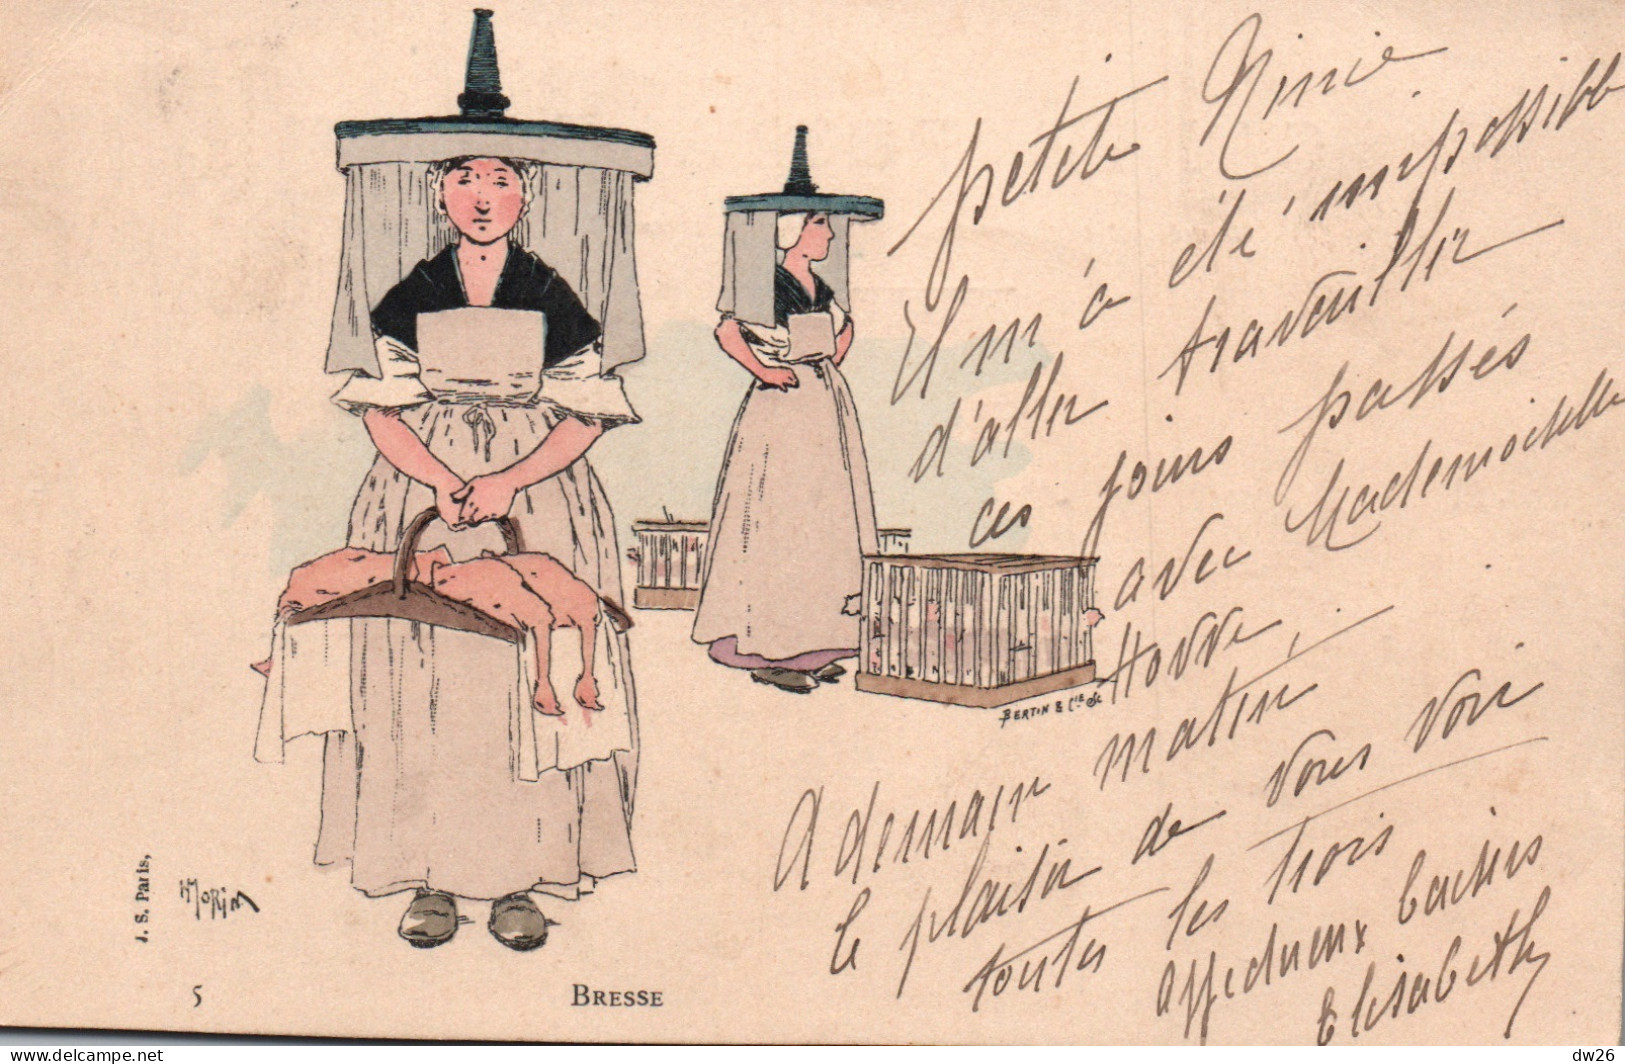 petite Ninie
Il m'a été impossible
d'aller travailler
ces jours passés
avec Mademoiselle
Hovve
A demain matin,
le plaisir de vous voir
toutes les trois
affectueux baisers
Elisabeth
BERTIN & Cie Sc
J. S. Paris,
H MORIN
5
BRESSE
dw26